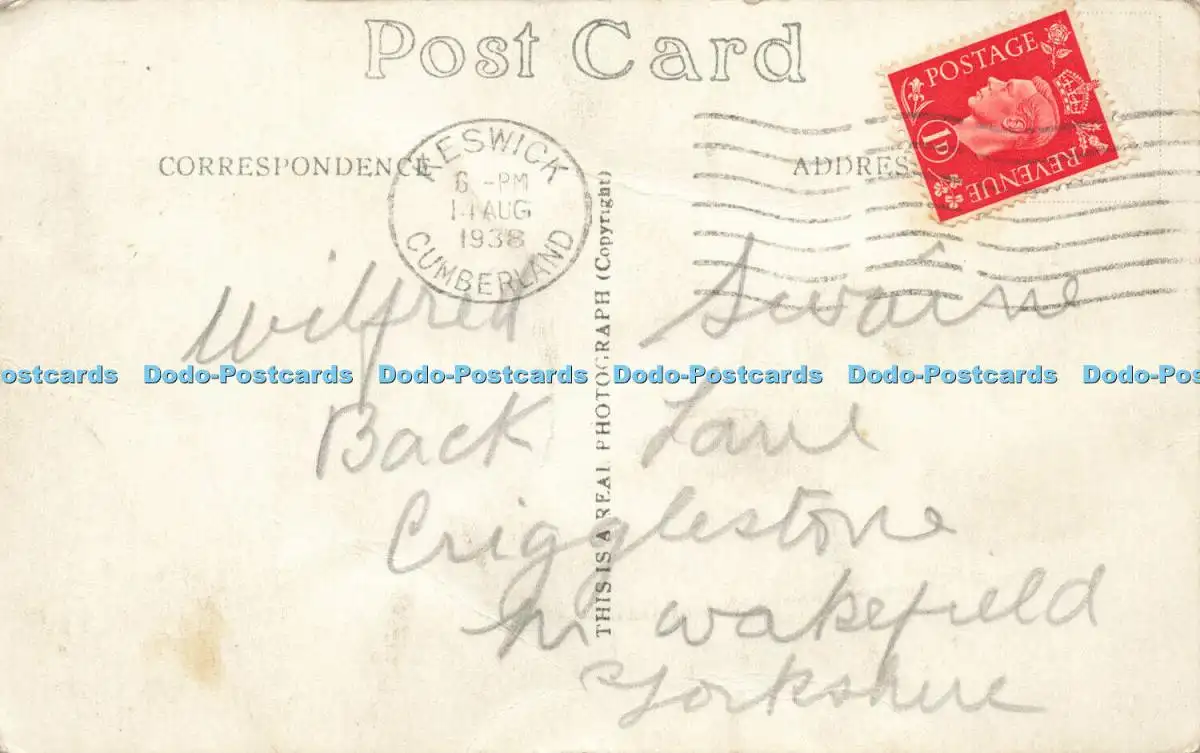 Post Card
POSTAGE
1D
REVENUE
CORRESPONDENCE
ADDRES
KESWICK
6 -PM
14 AUG
1938
CUMBERLAND
THIS IS A REAL PHOTOGRAPH (Copyright)
Wilfred Swaine
ostcards Dodo-Postcards Dodo-Postcards Dodo-Postcards Dodo-Postcards Dodo-Pos
Back Lane
Crigglestone
nr Wakefield
Yorkshire